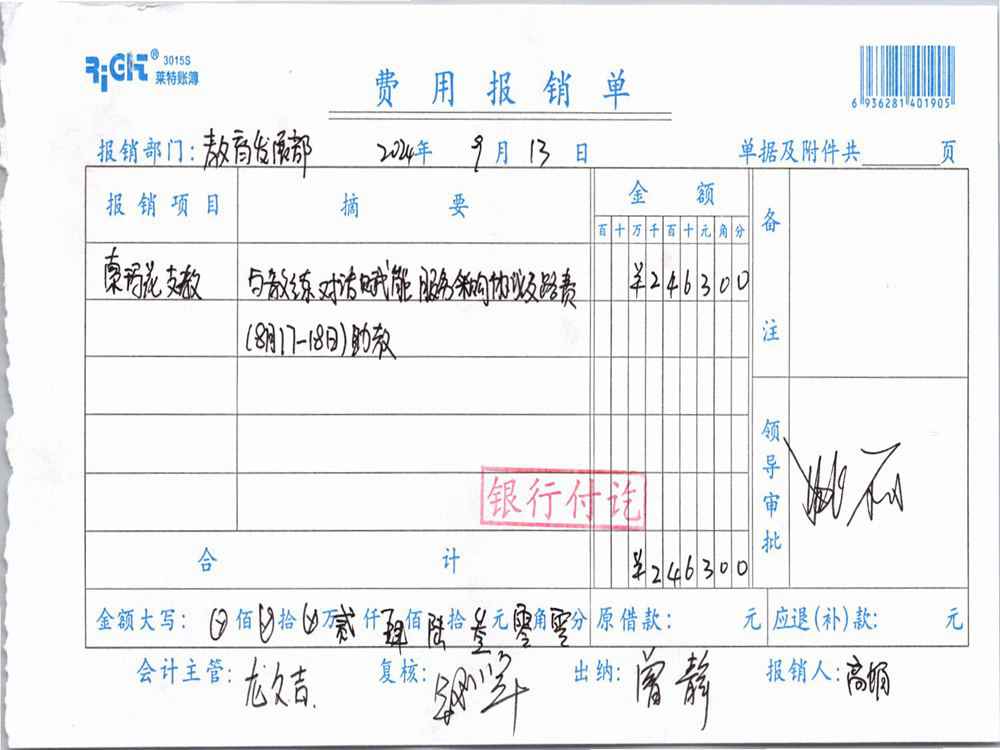 RiGHT® 3015S
莱特账簿
费用报销单
6 936281 401905
报销部门：教育发展部 2024年 9月 13日 单据及附件共 页
报销项目 摘要 金额 备注
百 十 万 千 百 十 元 角 分
桑珂花支教 与教练对话赋能服务采购协议及路费 ¥246300
(8月17-18日)助教
领导审批
银行付讫
合计 ¥246300
金额大写： 佰 拾 万 贰仟 肆佰 陆拾 叁元 零角 零分 原借款： 元 应退(补)款： 元
会计主管：龙文吉 复核： 出纳：曾静 报销人：高娟